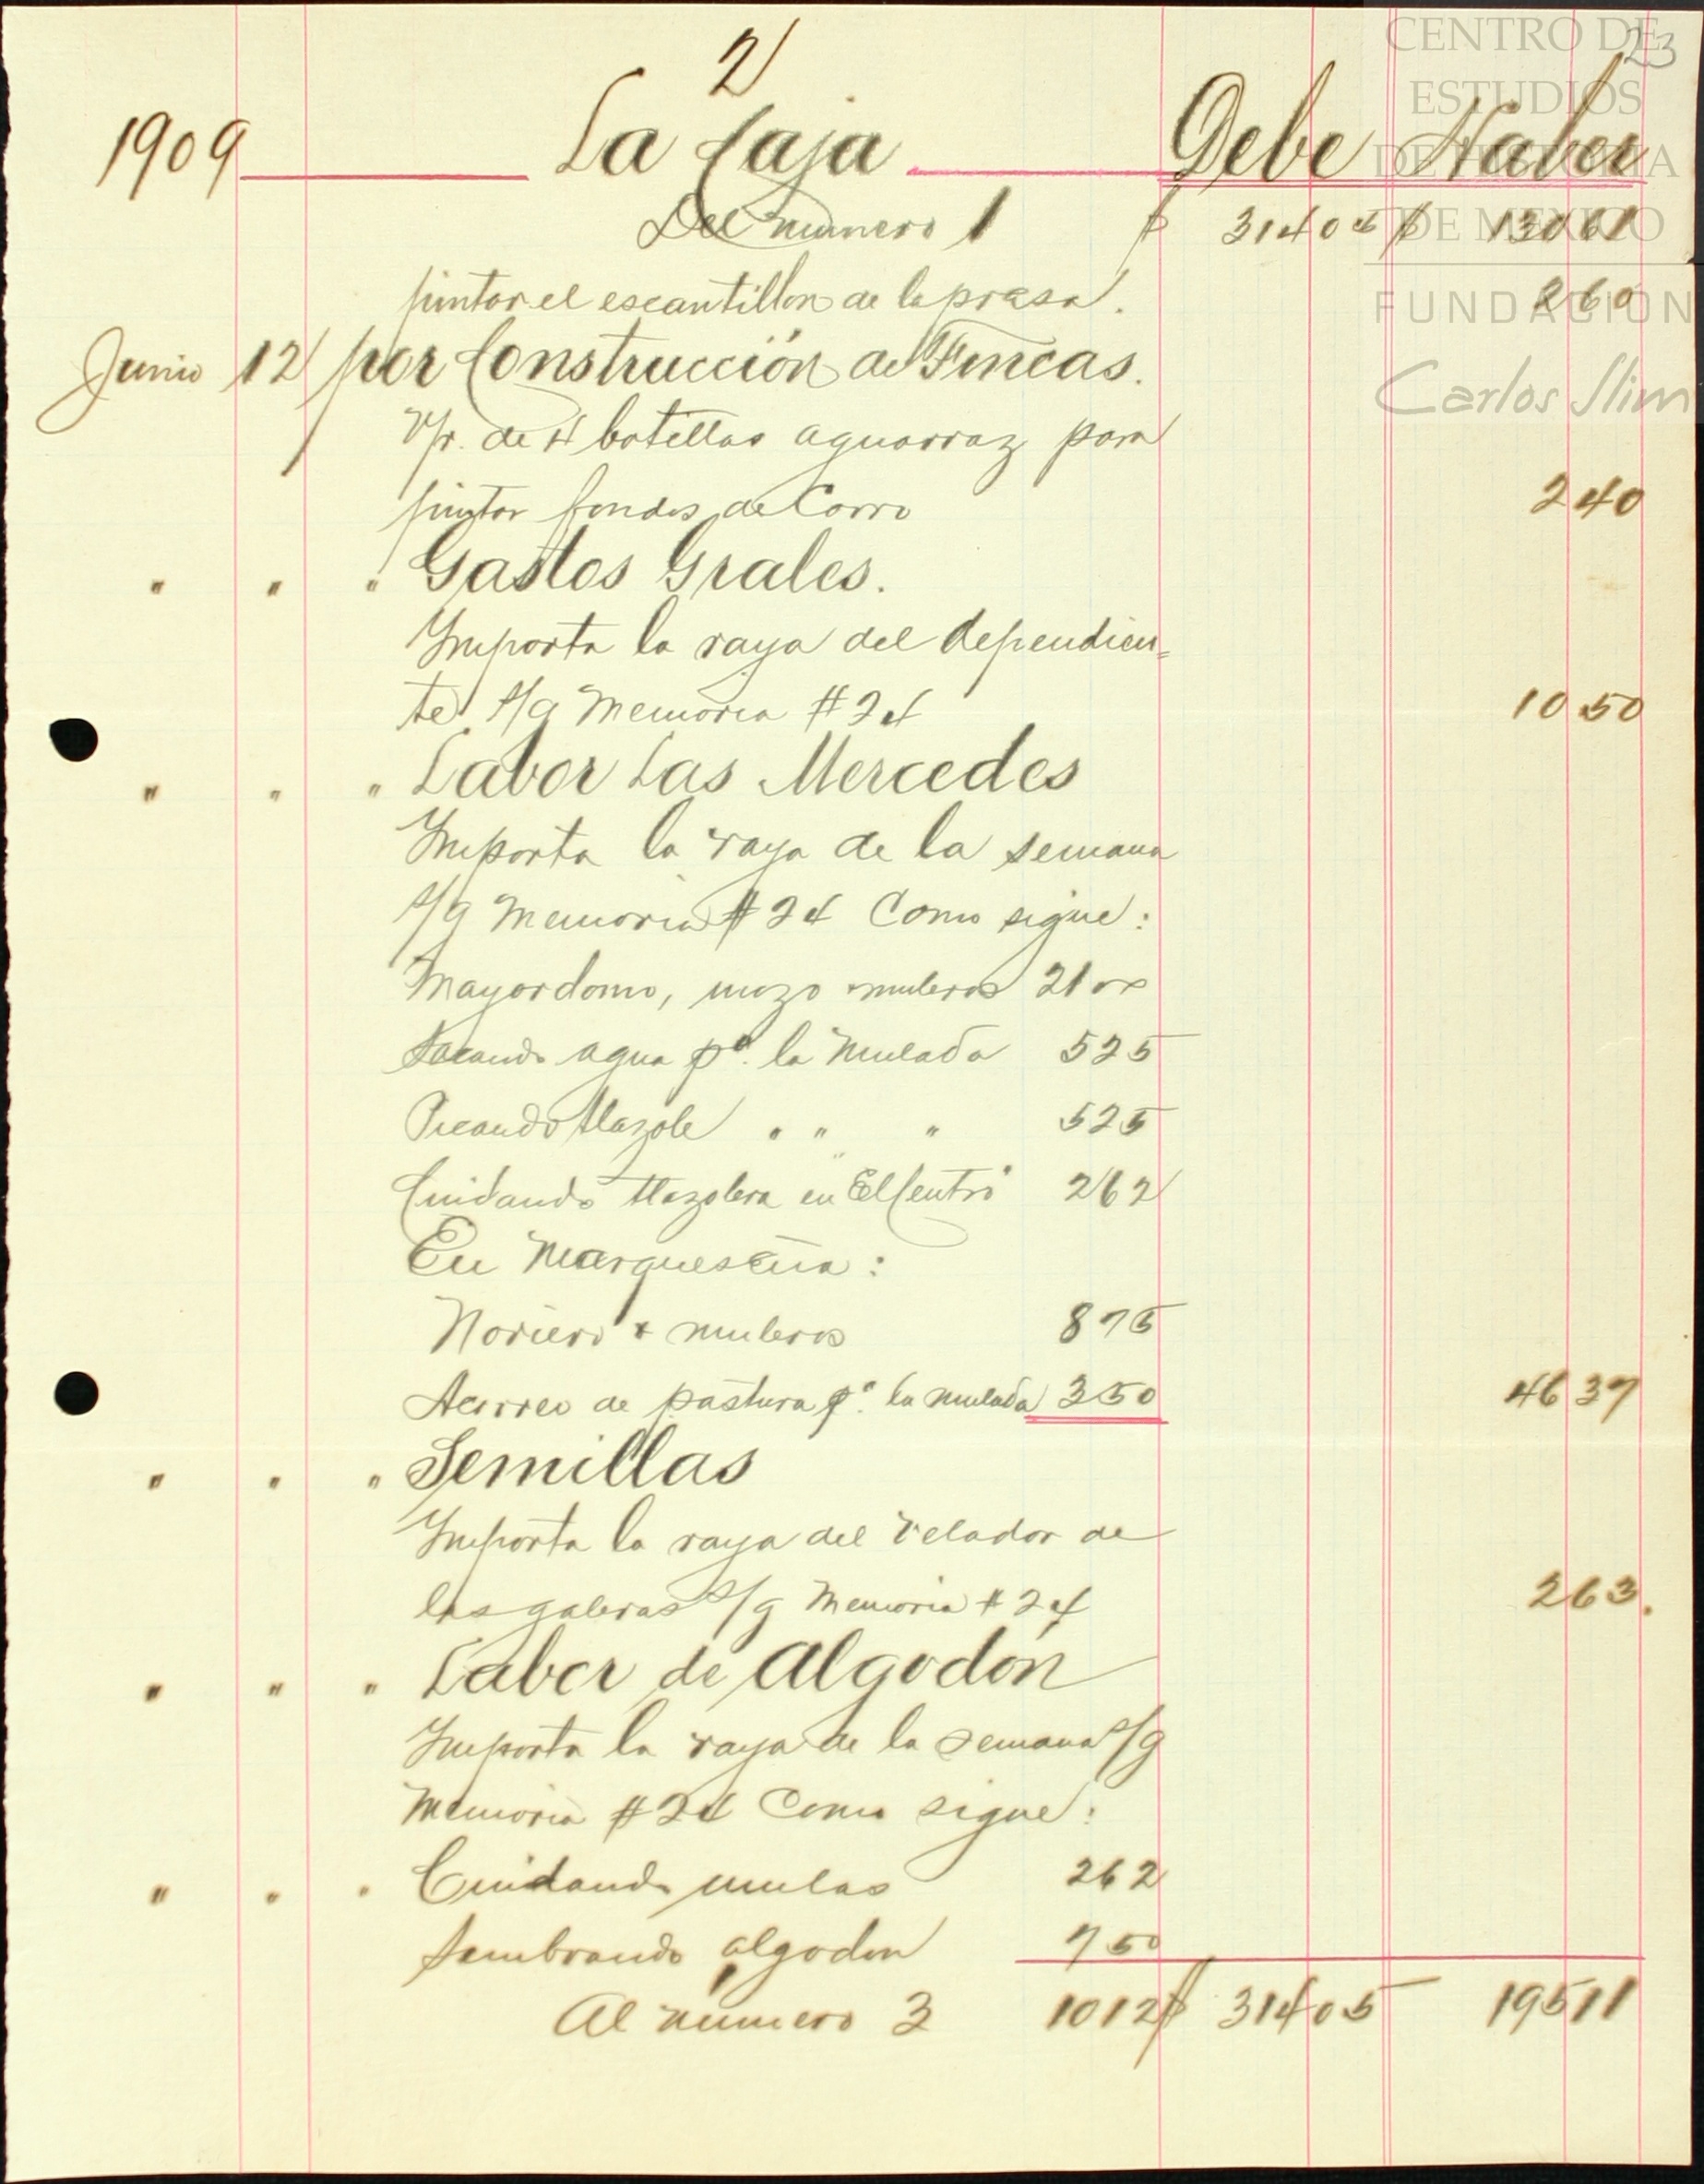 2
23
CENTRO DE
ESTUDIOS
DE HISTORIA
DE MEXICO
FUNDACION
Carlos Slim
1909 La Caja Debe Haber
Del numero 1 $ 31405 $ 13061
pintar el escantillon de la presa. 260
Junio 12 por Construcción de Fincas.
V/r. de 4 botellas aguarraz para
pintar fondos de Carro 240
" " " Gastos Grales.
Importa la raya del dependien=
te s/g Memoria #24 1050
" " " Labor Las Mercedes
Importa la raya de la semana
s/g Memoria #24 Como sigue:
Mayordomo, mozo muleros 2100
Sacando agua pa. la Mulada 525
Picando tlazole " " " 525
Cuidando tlazolera en El Centro 262
En Marqueseña:
Noriero + muleros 875
Acarreo de pastura pa. la mulada 350 4637
" " " Semillas
Importa la raya del velador de
las galeras s/g Memoria #24 263.
" " " Labor de Algodón
Importa la raya de la semana s/g
Memoria #24 Como sigue:
" " " Cuidando mulas 262
Sembrando algodon 750
Al número 3 1012 $ 31405 19511